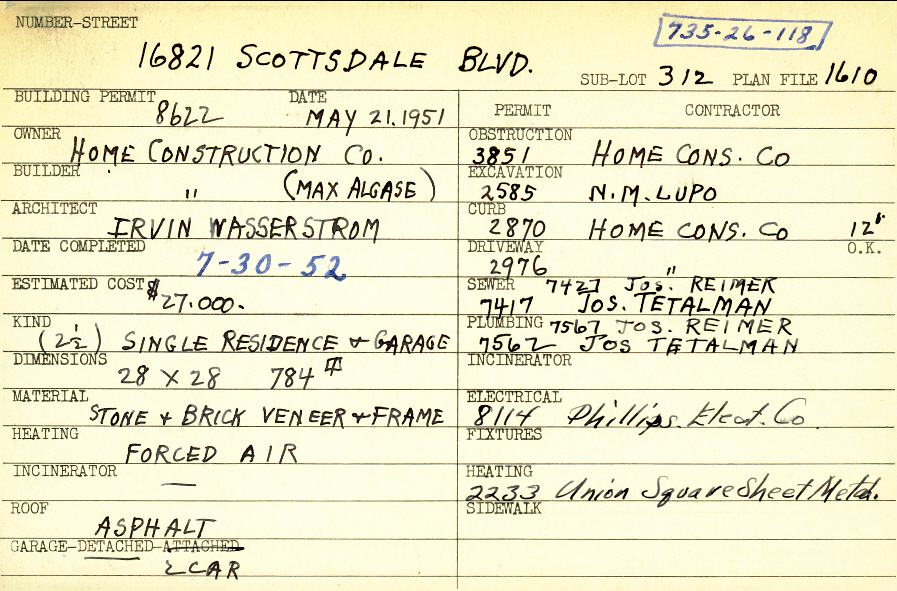 NUMBER-STREET
735-26-118
16821 SCOTTSDALE BLVD.
SUB-LOT 312 PLAN FILE 1610
BUILDING PERMIT DATE
8622 MAY 21, 1951
OWNER
HOME CONSTRUCTION CO.
BUILDER
" (MAX ALGASE)
ARCHITECT
IRVIN WASSERSTROM
DATE COMPLETED
7-30-52
ESTIMATED COST
$27.000.
KIND
(2½) SINGLE RESIDENCE & GARAGE
DIMENSIONS
28 X 28 784
MATERIAL
STONE & BRICK VENEER & FRAME
HEATING
FORCED AIR
INCINERATOR
—
ROOF
ASPHALT
GARAGE-DETACHED-ATTACHED
2 CAR
PERMIT CONTRACTOR
OBSTRUCTION
3851 HOME CONS. CO
EXCAVATION
2585 N.M. LUPO
CURB
2870 HOME CONS. CO 12'
DRIVEWAY O.K.
2976 "
SEWER 7427 JOS. REIMER
7417 JOS. TETALMAN
PLUMBING 7567 JOS. REIMER
7562 JOS TETALMAN
INCINERATOR
ELECTRICAL
8114 Phillips. Elect. Co
FIXTURES
HEATING
2233 Union Square Sheet Metal.
SIDEWALK